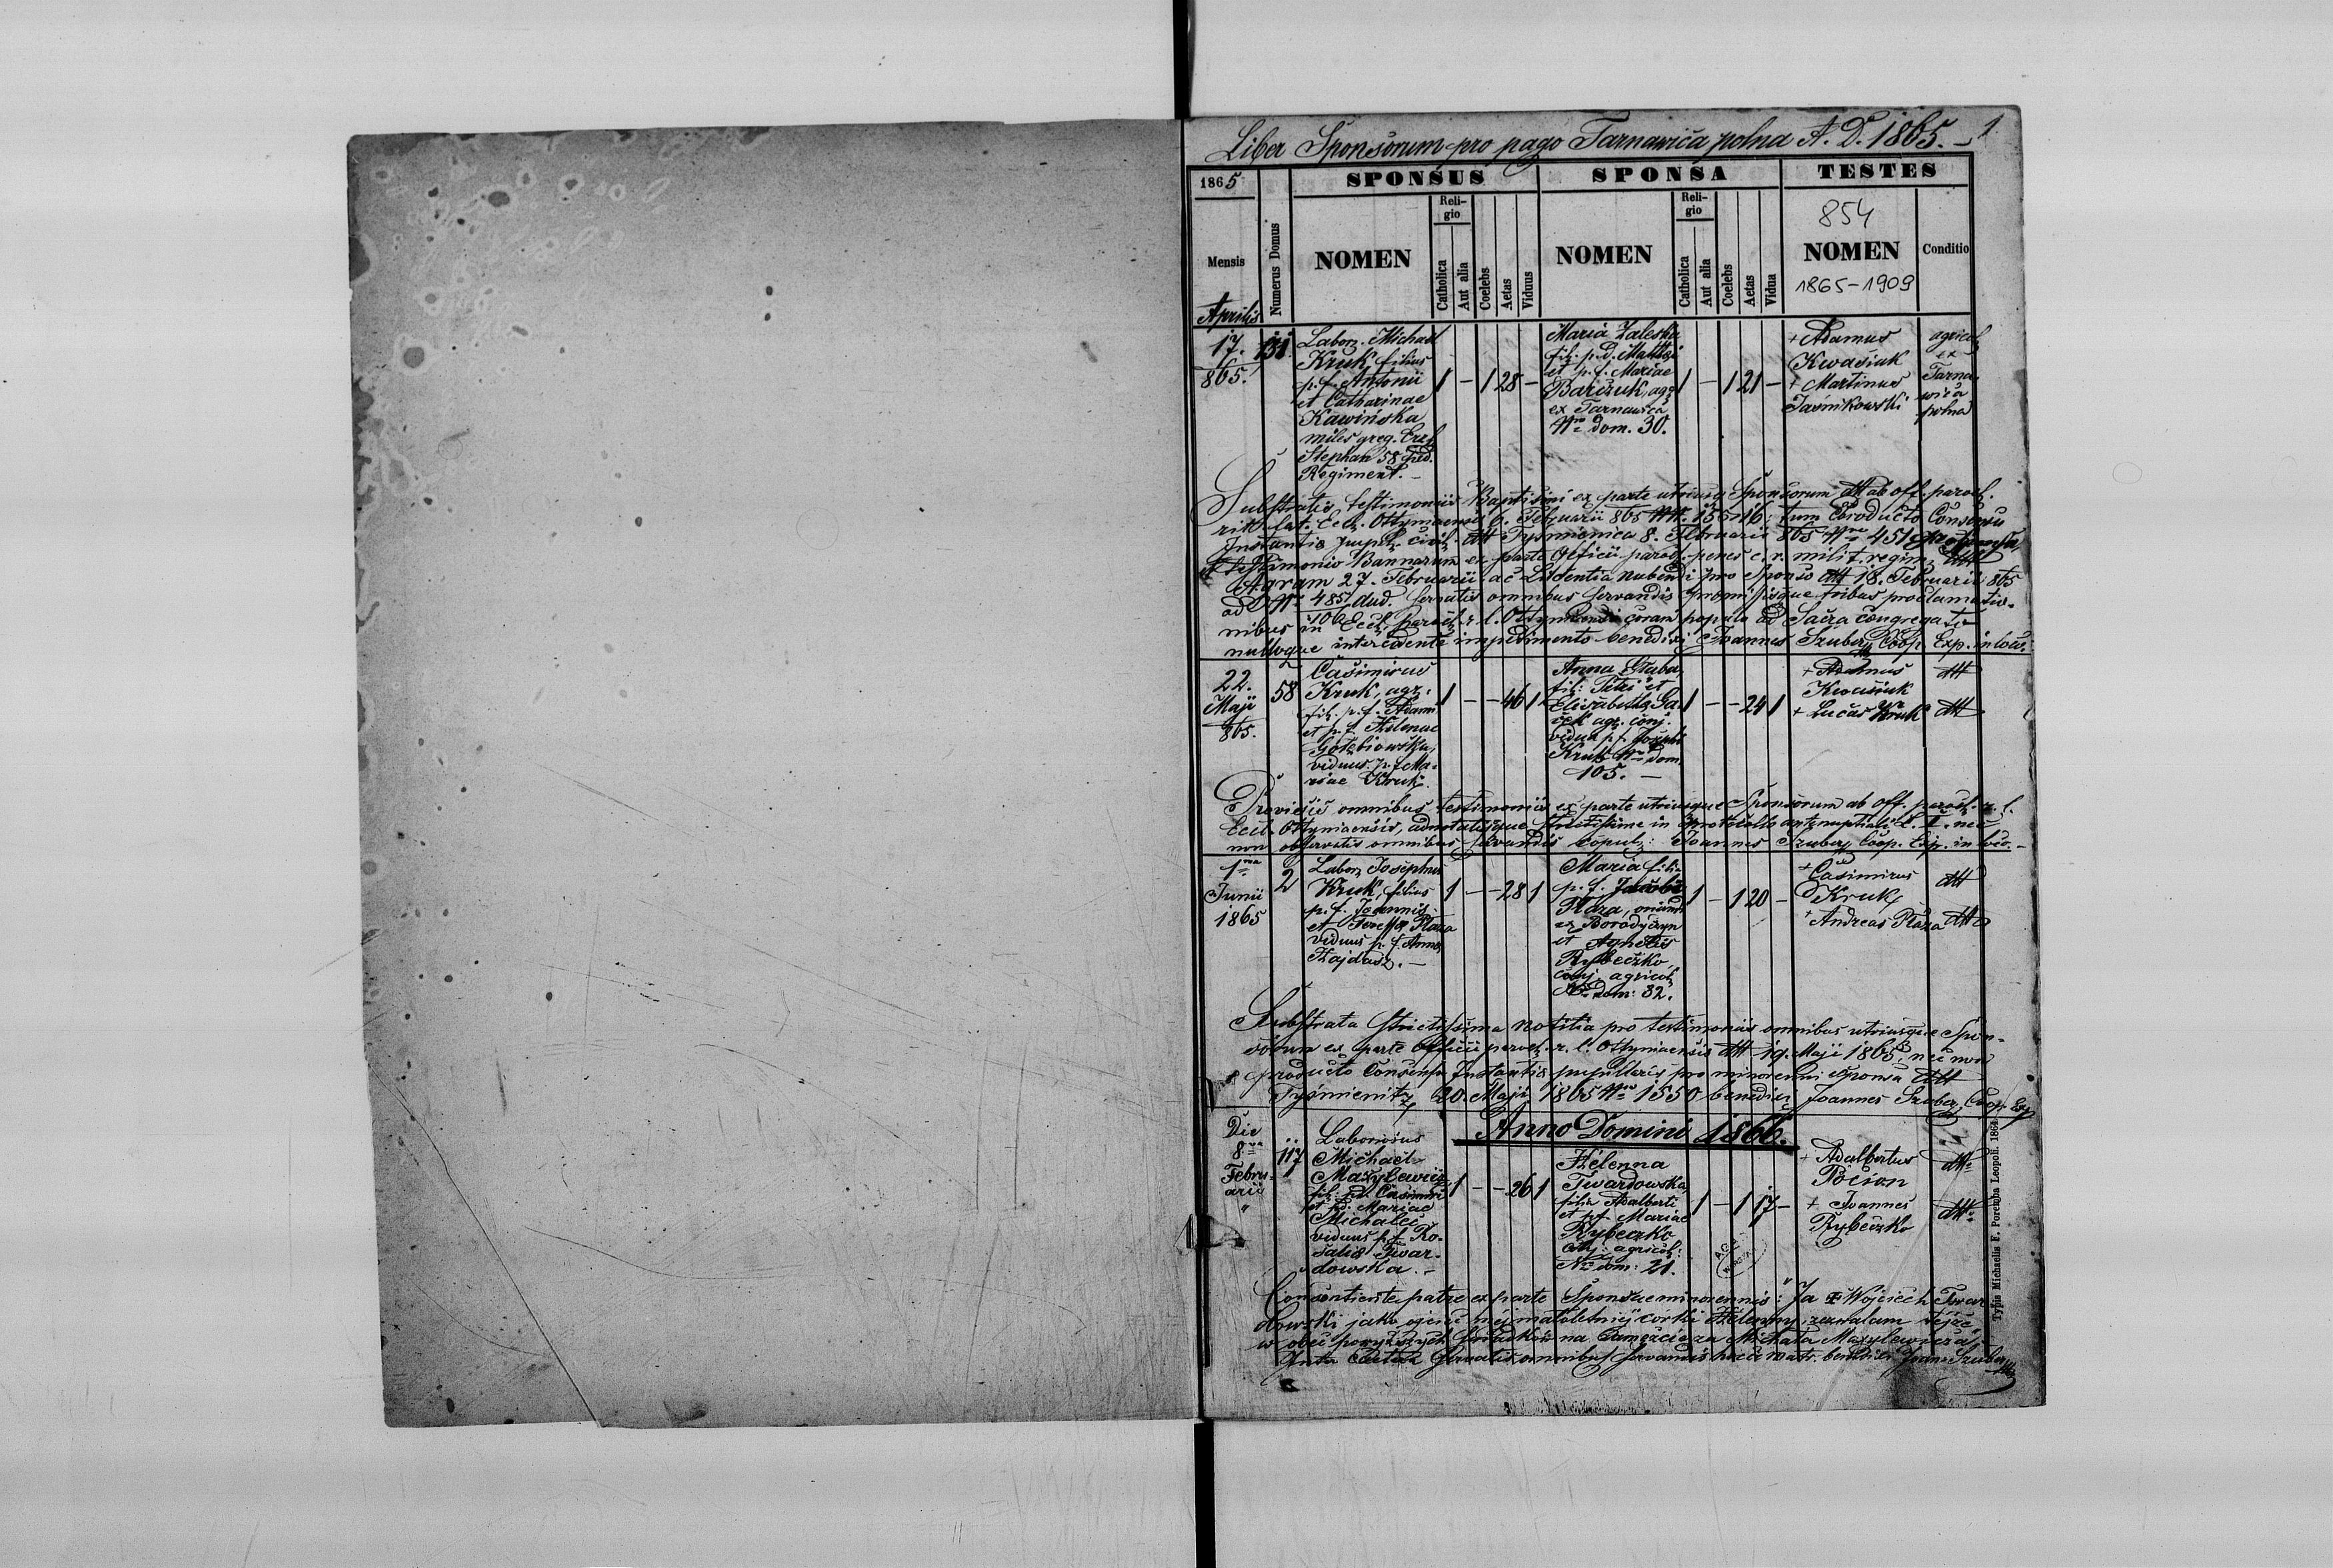 Liber Sponsorum pro pago Tarnawica polna A. D. 1865. 1.
1865
SPONSUS
SPONSA
TESTES
Mensis
Numerus Domus
NOMEN
Religio
Catholica
Aut alia
Coelebs
Aetas
Viduus
NOMEN
Religio
Catholica
Aut alia
Coelebs
Aetas
Vidua
854
NOMEN
1865-1909
Conditio
Aprilis
17.
865.
131.
Labor. Michael
Kruk, filius
p. f. Antonii
et Catharinae
Kawińska
miles greg.
Stephan 58 ped.
Regiment. -
1 - 1 28 -
Maria Zaleska
fil. p. d. Matthaei
et p. f. Mariae
Barczuk, agr.
ex Tarnawica
Nro dom. 30.
1 - 1 21 -
+ Adamus
Kwasiuk
+ Martinus
Jasnikowski
agricol
ex
Tarna
wica
polna
Substratis testimoniis Baptismi ex parte utriusq Sponsorum dtt ab off. paroch.
rit. lat. Eccl. Ottyniaensi 6. Februarii 865 Nr. 15 16. tum Producto Consensu
Instantis civil. dtt Tysmienica 8. Februarii 865 Nro 451 pro Sponsa
et testimonio Bannorum ex parte Officii paroch. penes c. r. milit. regim. dtt
Agram 27. Februarii ac Licentia nubendi pro Sponso dtt 18. Februarii 865
ad Nr 485 servatis omnibus servandis promissisque tribus proclamatio-
nibus in Eccl. paroch. r. l. Ottyniaensi coram populo ad Sacra congregato
nulloque intercedente impedimento benedixi Joannes Szuber, Coop. Exp. in loco.
22.
Maji
865.
58
Casimirus
Kruk, agr.
fil. p. f. Adami
et p. f. Helenae
Gołebiowska,
viduus p. f. Ma-
riae Kruk.
1 - - 46 1
Anna
fil: Petri et
Elisabeth
agr. conj.
vidua p. f. Josephi
Kruk Nro dom.
105. -
1 - - 24 1
+ Adamus
Kwasiuk
+ Lucas Kruk
dtt
dtt
Provisis omnibus testimoniis ex parte utriusque Sponsorum ab off. paroch. r. l.
Eccl. Ottyniaensis, adnotatisque strictissime in protocollo L. I. nec
non observatis omnibus servandis copul: Joannes Szuber, Coop. Exp. in loco. -
1ma
Junii
1865
2
Labor Josephus
Kruk, filius
p. f. Joannis
et Teressa Płaza
viduus p. f. Anna
Hajdasz. -
1 - - 28 1
Maria filia
p. f. Jacobi
Płaza, oriund.
ex Borodyczyn
et Agnetis
Rybeczko,
conj. agricol.
Nro dom: 32.
1 - 1 20 -
+ Casimirus
Kruk,
+ Andreas Płaza
dtt
dtto
Substrata strictissima notitia pro testimoniis omnibus utriusque Spon-
sorum ex parte Officii paroch. r. l. Ottyniaensis dtt 19. Maji 1865, nec non
producto Consensu Instantis pupillaris pro minorenni sponsa dtt
Tyśmienitz, 20. Maji 1865 Nro 1550 benedixi Joannes Szuber, Coop. Exp
Anno Domini 1866.
Die
8va
Febru-
arii
"
117
Laboriosus
Michael
Mazylewicz
fil: p. d. Casimiri
et p. d. Mariae
Michalec
viduus p. f. Ro-
salia Twar-
dowska. -
1 - - 26 1
Helenna
Twardowska,
filia Adalberti
et p. f. Mariae
Rybeczko
conj: agricol:
Nro dom: 21.
1 - 1 17 -
+ Adalbertus
Pocion
+ Joannes
Rybeczko
dtto
dtto
Consentiente patre ex parte Sponsae minorennis: "Ja + Wojciech Twar
dowski jako ojciec mej małoletniej córki Helenny, zezwalam tejże
w obec powyższych świadków na zamęźcie za Michała Mazylewicza"
servatis omnibus servandis benedixi Joann Szuber
Typis Michaelis F. Poremba Leopoli. 1864.